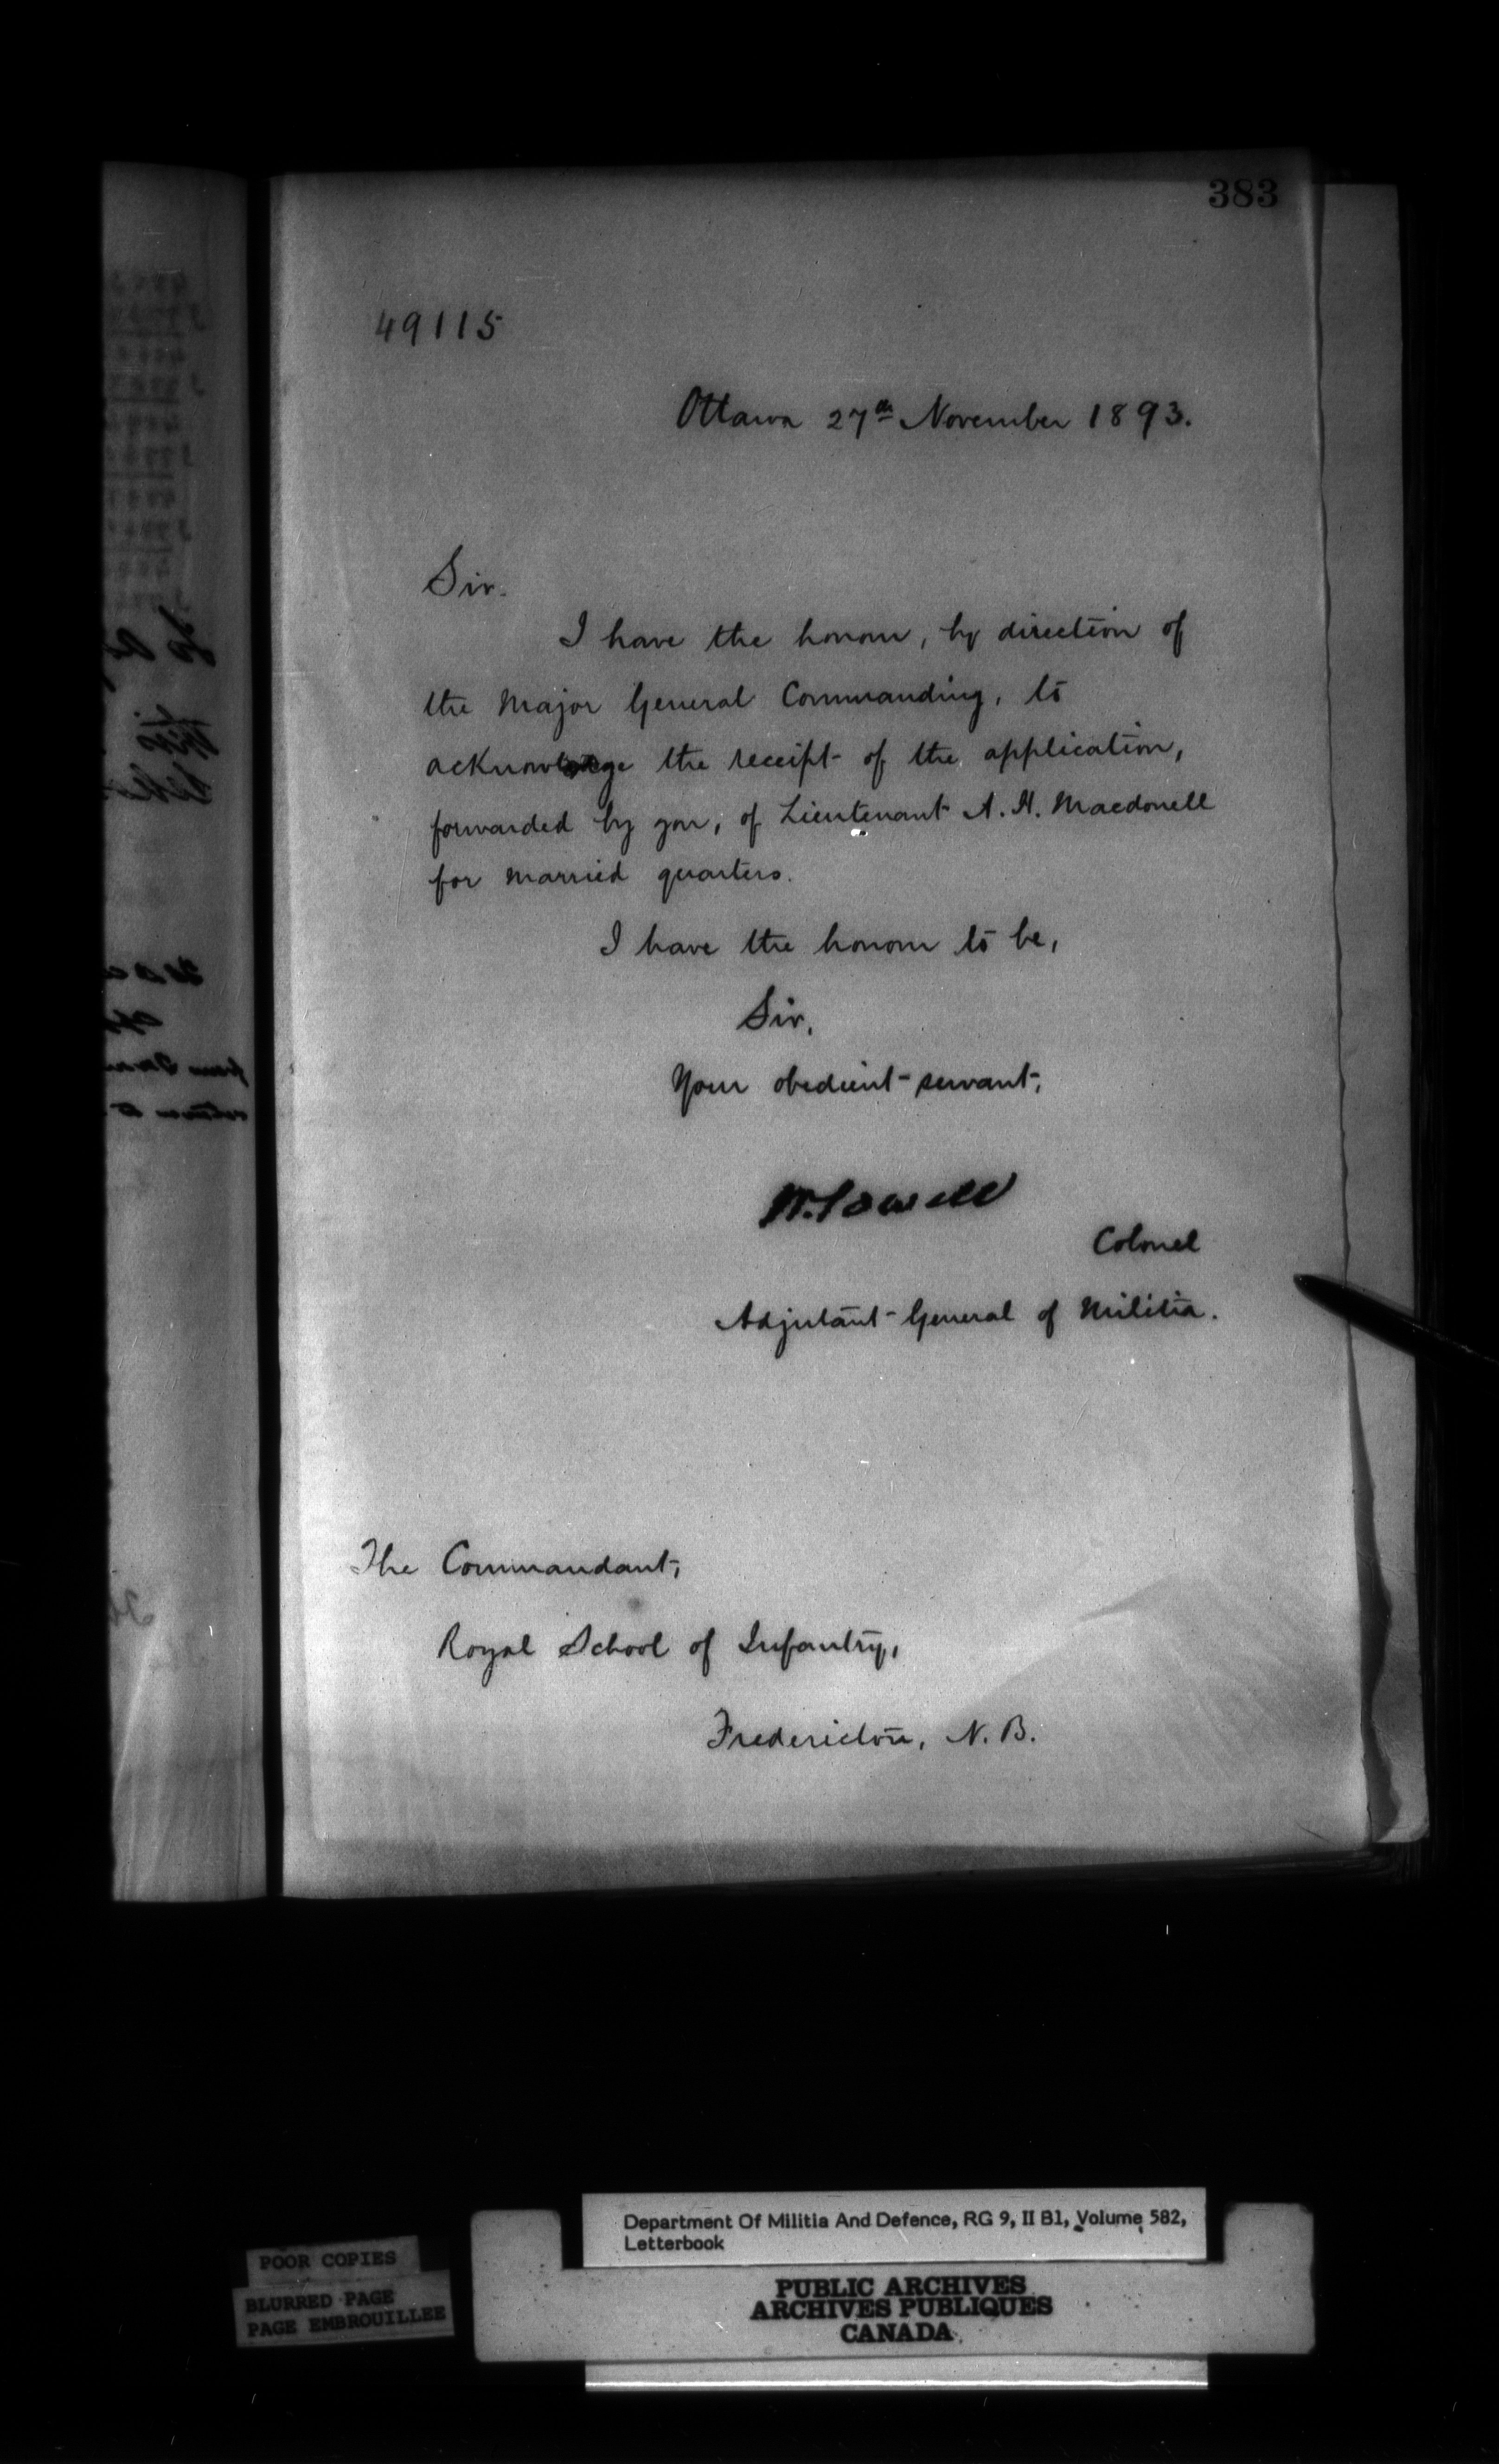 383
49115
Ottawa 27th November 1893.
Sir.
I have the honour, by direction of
the Major General Commanding, to
acknowledge the receipt of the application,
forwarded by you, of Lieutenant A. H. Macdonell
for married quarters.
I have the honour to be,
Sir,
Your obedient servant,
W. Powell
Colonel
Adjutant General of Militia.
The Commandant,
Royal School of Infantry,
Fredericton, N. B.
Department Of Militia And Defence, RG 9, II B1, Volume 582,
Letterbook
POOR COPIES
BLURRED PAGE
PAGE EMBROUILLEE
PUBLIC ARCHIVES
ARCHIVES PUBLIQUES
CANADA